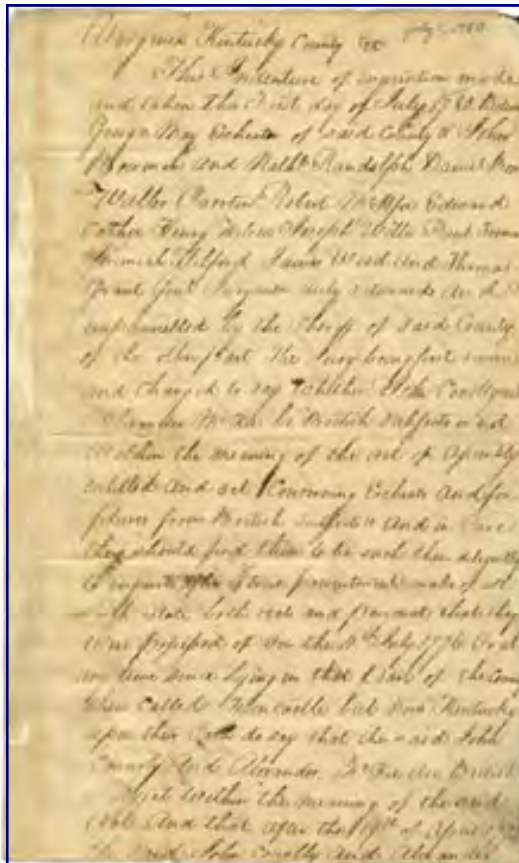 Virginia Kentucky County
July 1, 1780
This Indenture of inquisition made
and taken this First day of July 1780 Between
George May Escheator of said County & John
Bowman and Nathl Randolph Daniel
Waller Robert McAfee Edward
Cather Henry Wilson Joseph Willis
Jeremiah Tilford James Wood And Thomas
Grant Gent. Jurymen duly summoned and
impannelled by the Sheriff of said County
of the other part the Jury being first sworn
and charged to say whether John Connolly and
Alexander McKee be British subjects or not
within the meaning of the act of Assembly
entitled And act Concerning Escheats and for
feitures from British subjects And in Case
they should find them to be such then diligently
to inquire
estate both real and personal that they
were possessed of on the 4th July 1776 Or at
any time since lying in that of the County
then called but now Kentucky
upon their Oath do say that the said John
Connolly And Alexander McKee Are British
within the meaning of the said
And that after the 19th of April
the said John Conolly and Alexander